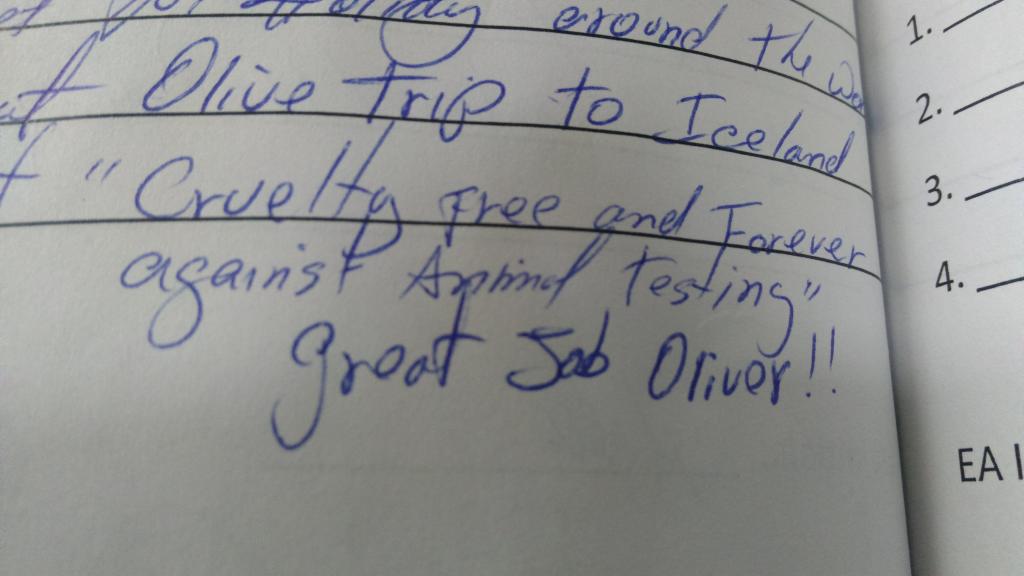 around the
Olive Trip to Iceland
" Cruelty Free and Forever
against Animal Testing"
great Job Oliver!!
1.
2.
3.
4.
EA